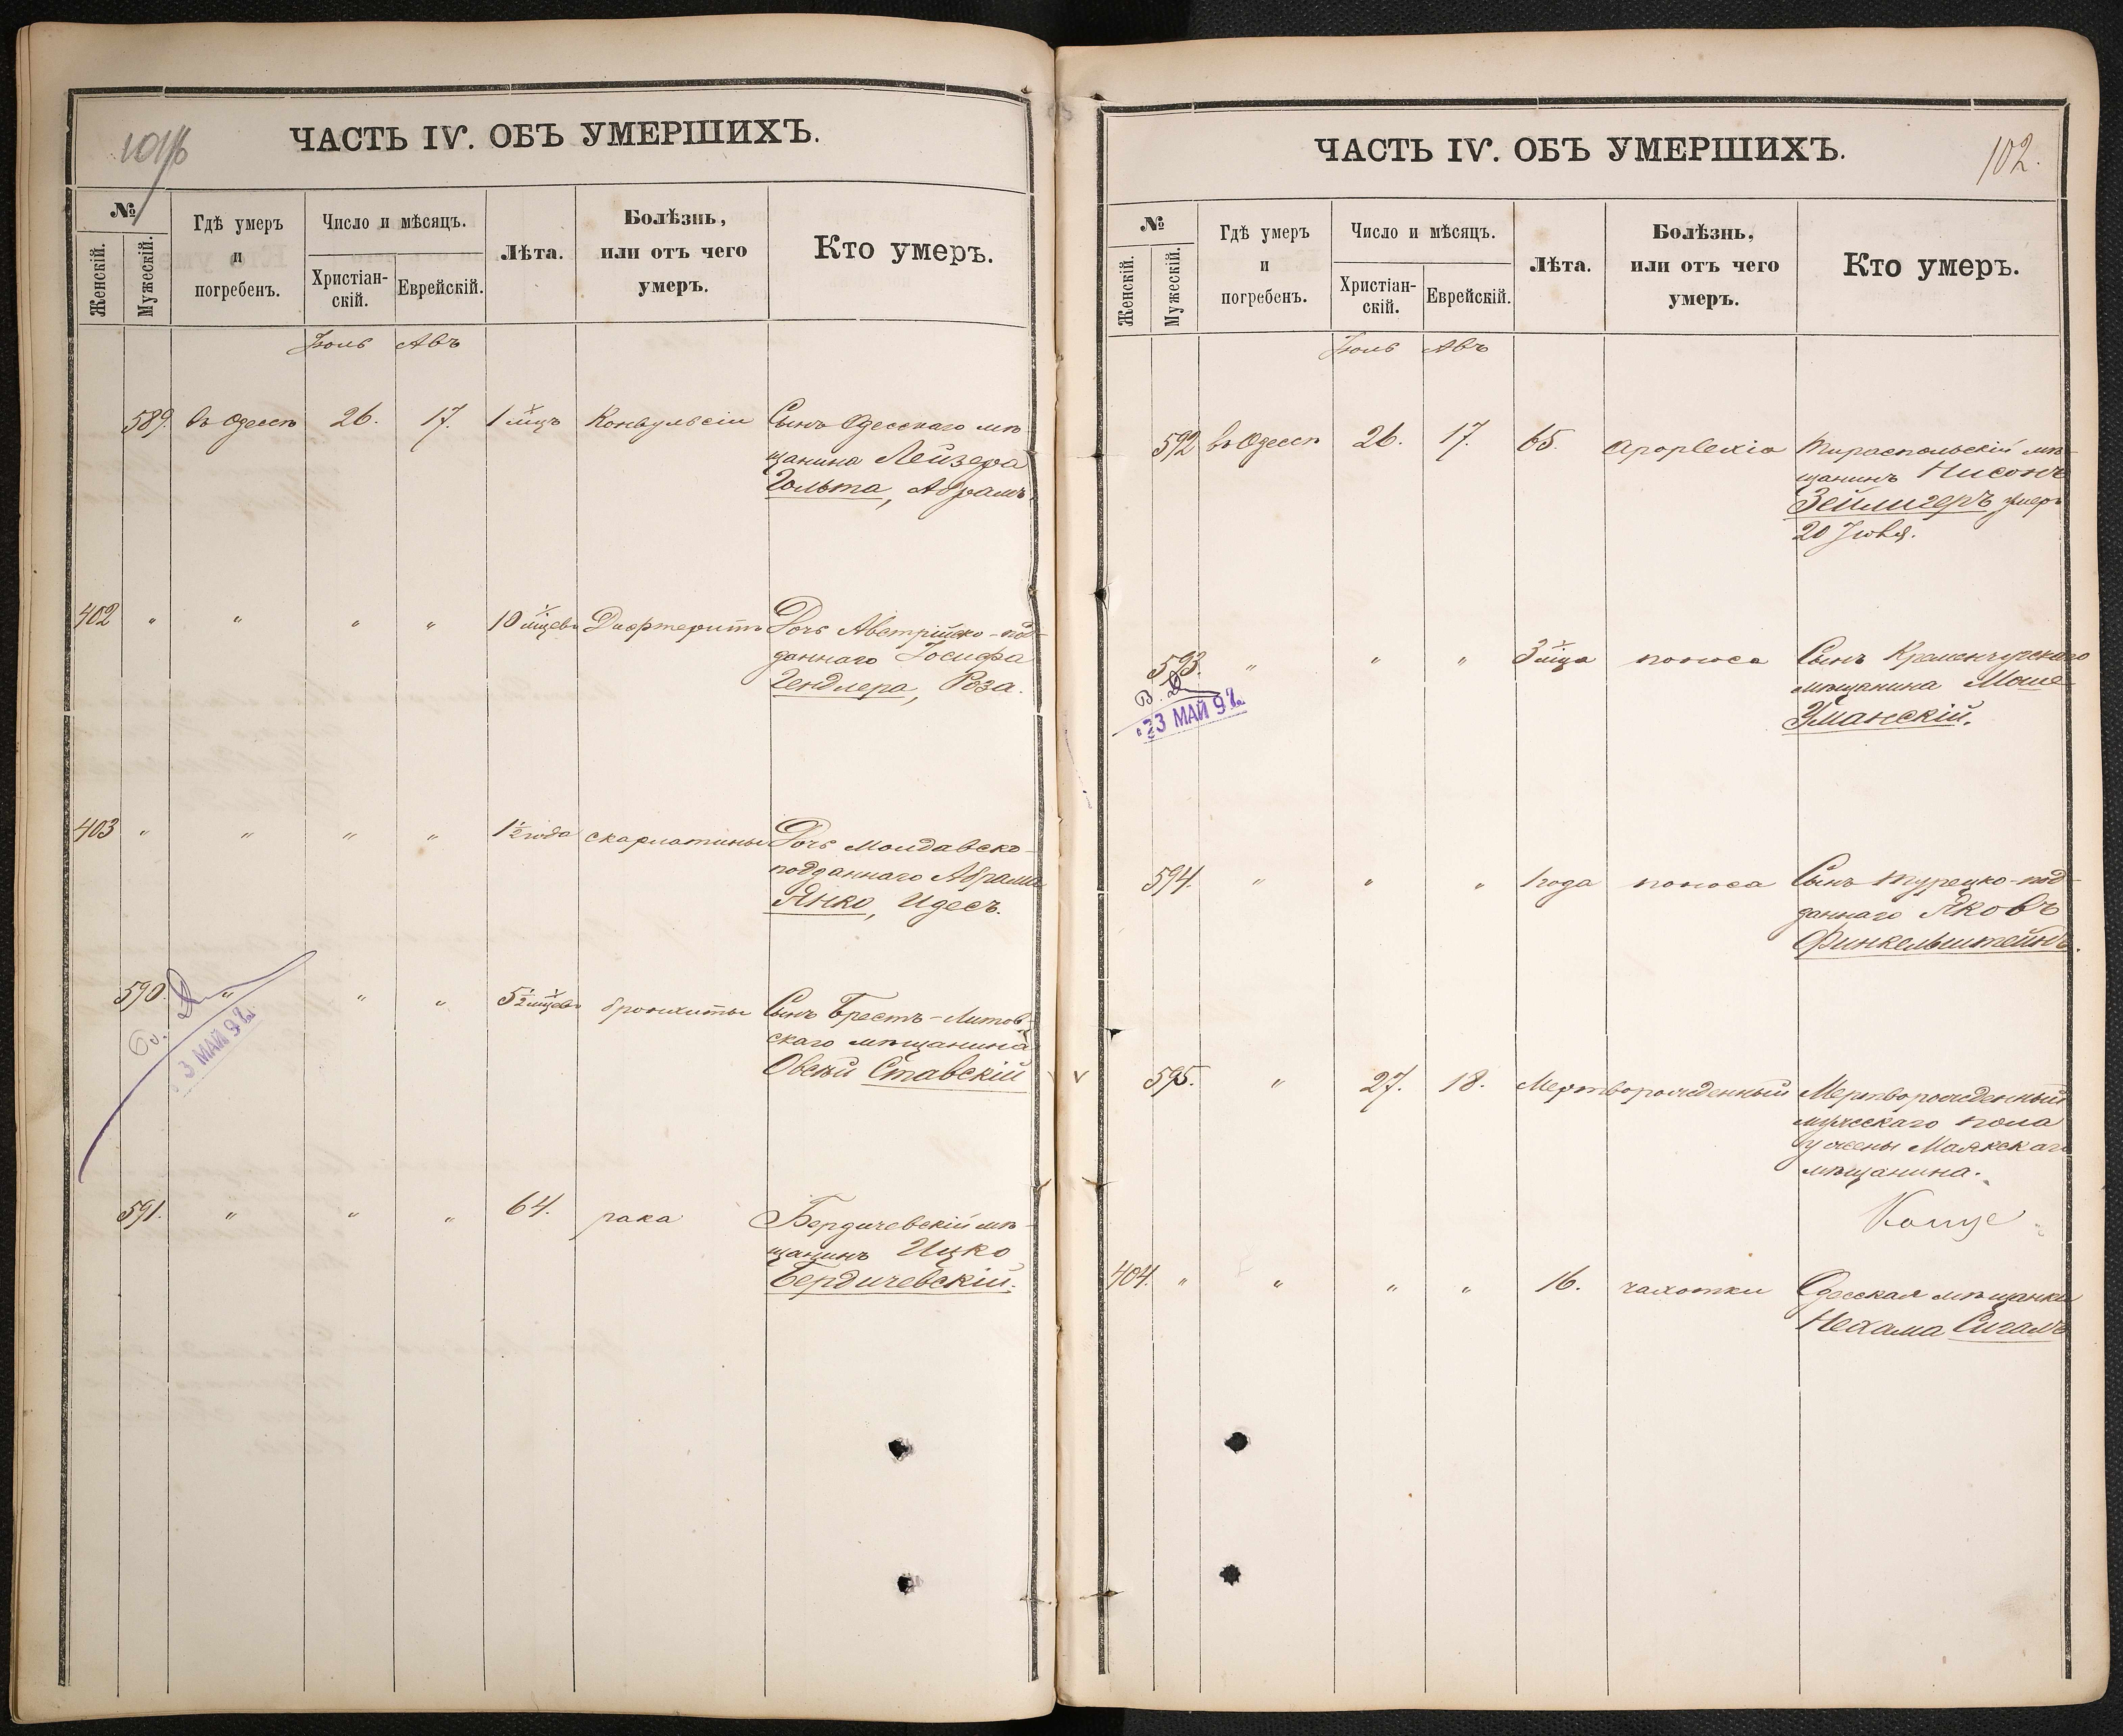 101/б
ЧАСТЬ IV. ОБЪ УМЕРШИХЪ.
№
Женскій.
Мужескій.
Гдѣ умеръ
и
погребенъ.
Число и мѣсяцъ.
Христіан-
скій.
Еврейскій.
Лѣта.
Болѣзнь,
или отъ чего
умеръ.
Кто умеръ.
Іюль Авъ
589. въ Одессѣ 26. 17. 1 мцъ Конвульсіи Сынъ Одесскаго мѣ-
щанина Лейзера
Гольта, Абрамъ.
402 " " " " 10 мцевъ Дифтеритъ Дочь Австрійско-под-
даннаго Іосифа
Гендлера, Роза.
403 " " " " 1½ года скарлатины Дочь Молдавско-
подданнаго Абрама
Янко, Идесъ.
590. " " " 5½ мцевъ бронхиты Сынъ Брестъ-Литов-
скаго мѣщанина
Овсѣй Ставскій
В. Д.
23 МАЙ 92
591. " " " 64. рака Бердичевскій мѣ-
щанинъ Ицко
Бердичевскій.
ЧАСТЬ IV. ОБЪ УМЕРШИХЪ.
102.
№
Женскій.
Мужескій.
Гдѣ умеръ
и
погребенъ.
Число и мѣсяцъ.
Христіан-
скій.
Еврейскій.
Лѣта.
Болѣзнь,
или отъ чего
умеръ.
Кто умеръ.
Іюль Авъ
592 въ Одессѣ 26. 17. 65. apoplexia Тираспольскій мѣ-
щанинъ Нисонъ
Зейлигеръ умеръ
20 Іюля.
593. " " " 3 мца поноса Сынъ Кременчугскаго
мѣщанина Моше
Уманскій.
В. Д.
23 МАЙ 92
594. " " " 1 года поноса Сынъ турецко-под-
даннаго Яковъ
Финкельштейнъ.
595. " 27. 18. Мертворожденный Мертворожденный
мужескаго пола
у жены Маякскаго
мѣщанина.
404. " " " " 16. чахотки Одесская мѣщанка
Нехама Сигалъ